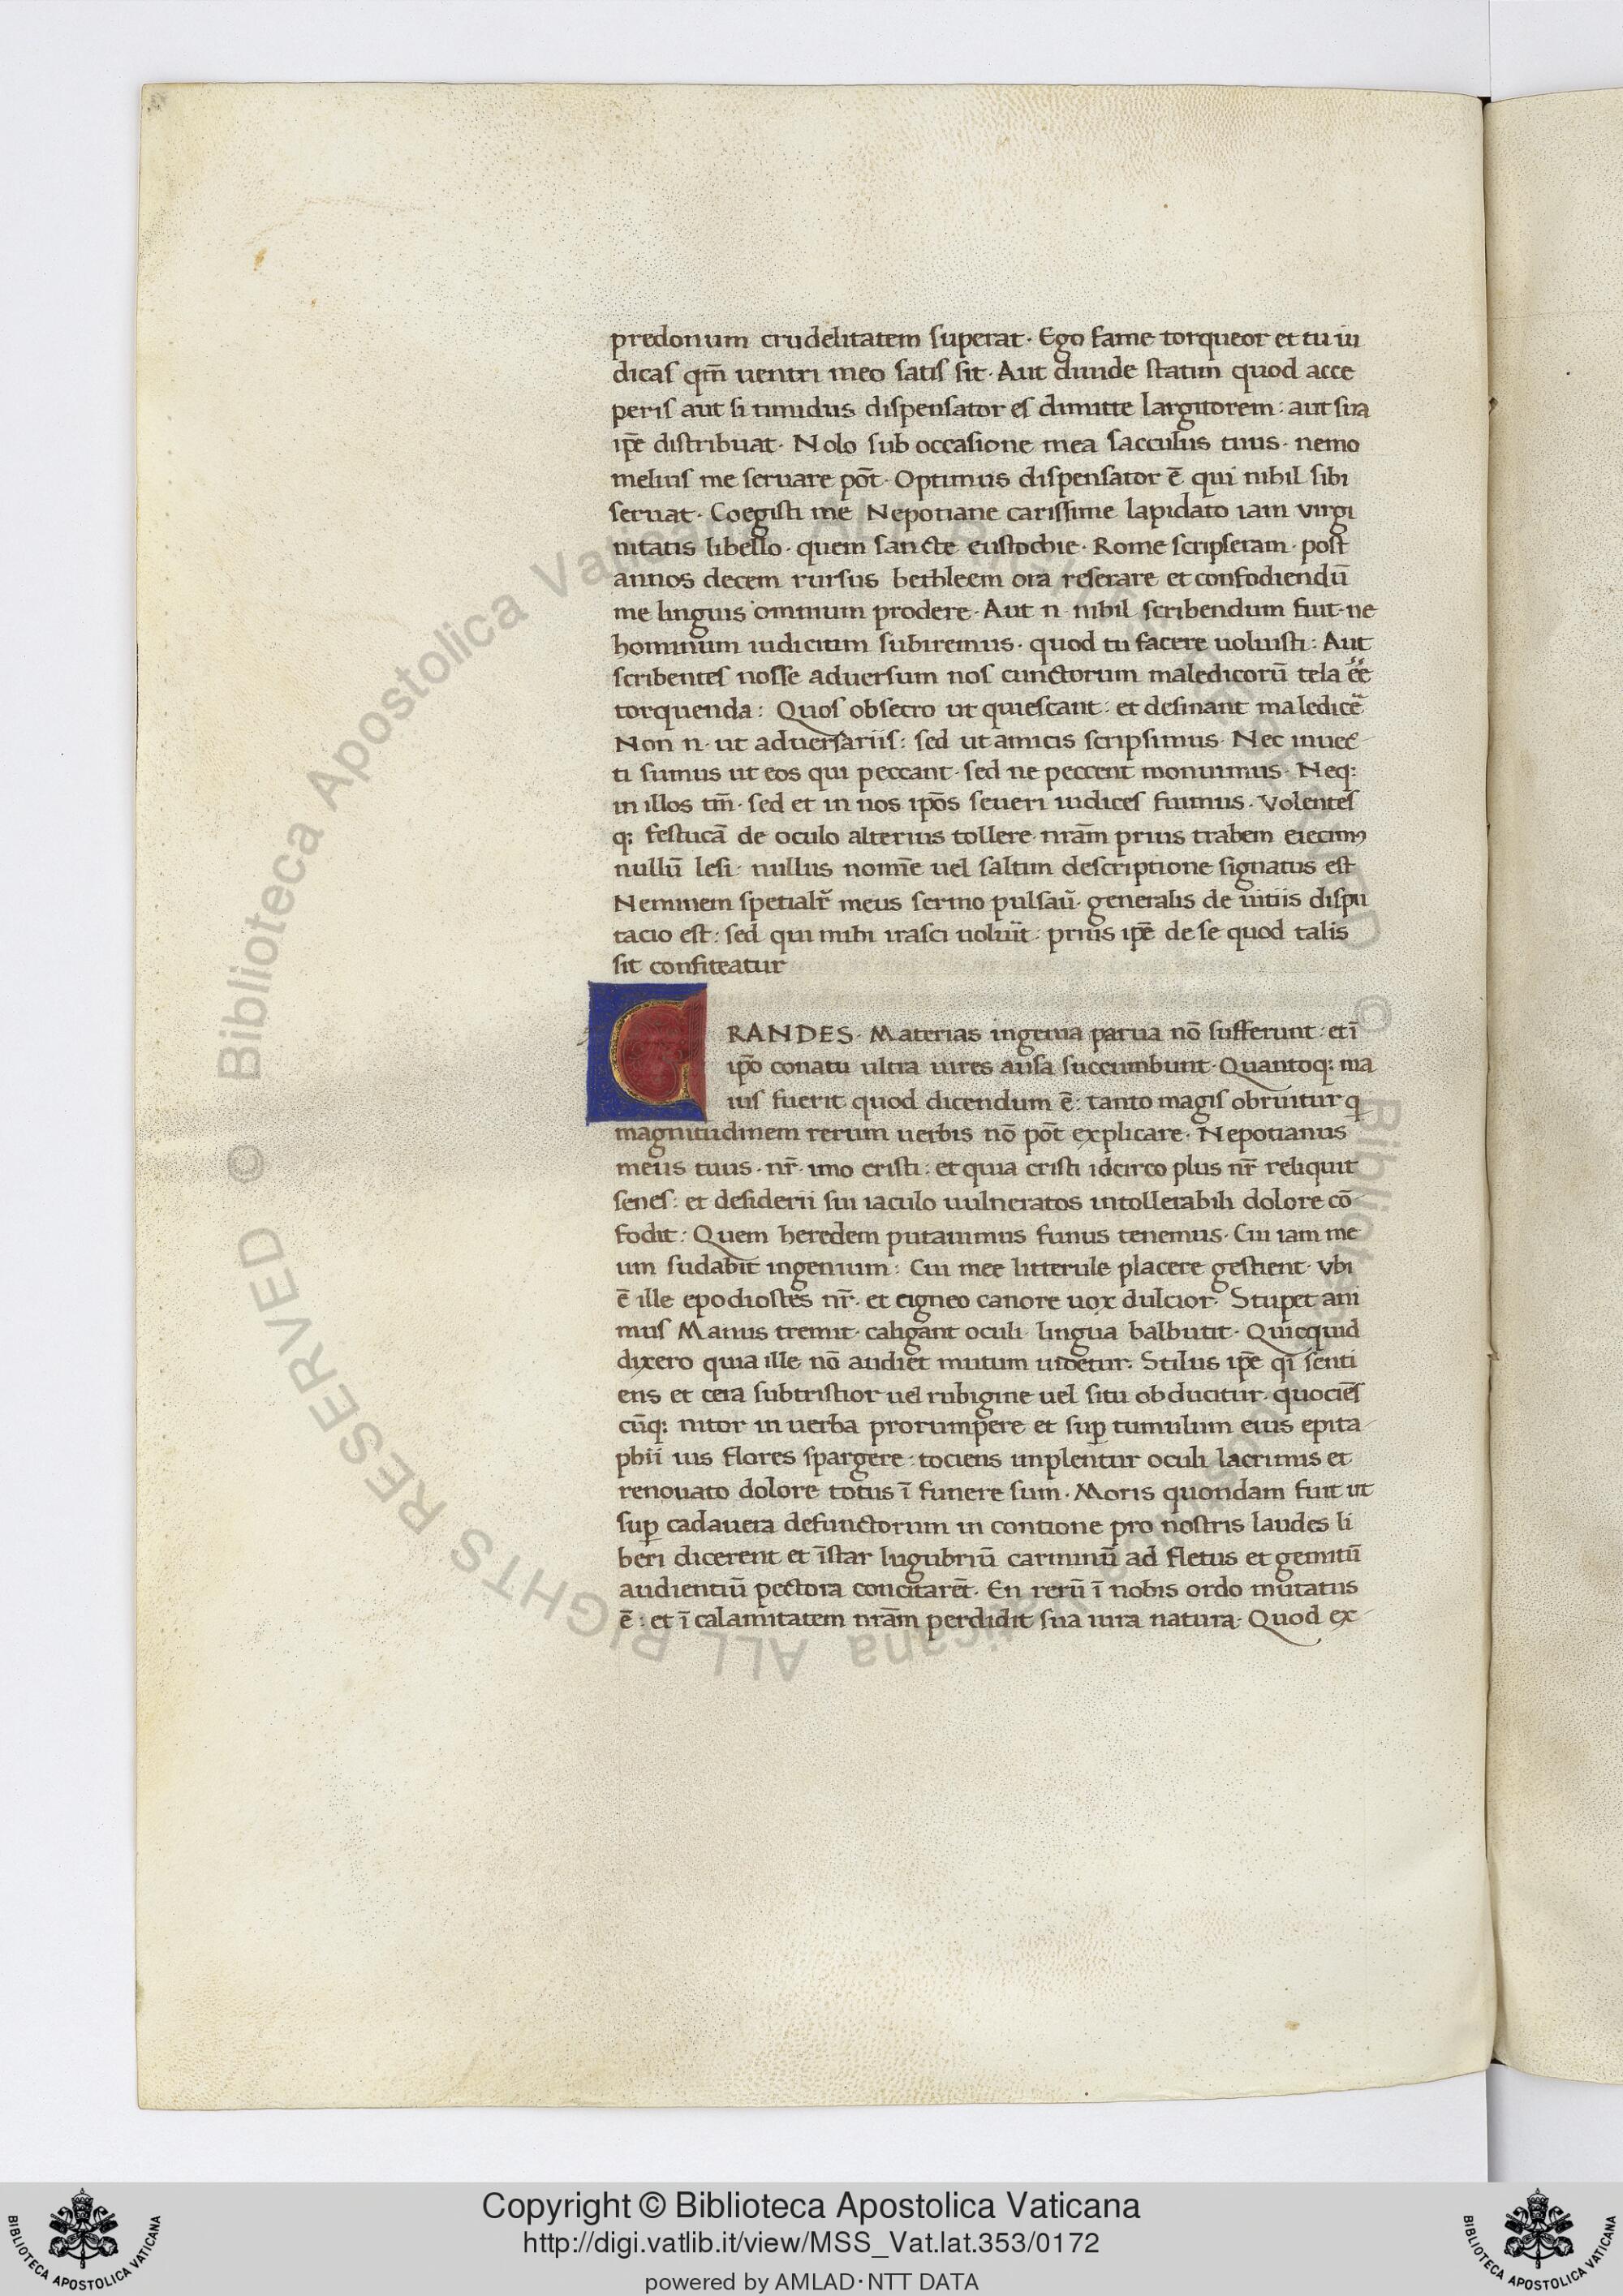 predonum crudelitatem superat· Ego fame torqueor et tu iu
dicas qm̄ uentri meo satis sit· Aut diuide statim quod acce
peris aut si timidus dispensator es dimitte largitorem: aut sua
ip̄e distribuat· Nolo sub occasione mea sacculus tuus· nemo
melius me seruare pōt· Optimus dispensator ē qui nihil sibi
seruat· Coegisti me Nepotiane carissime lapidato iam virgi
nitatis libello· quem sancte eustochie· Rome scripseram· post
annos decem rursus bethleem ora reserare et confodiendū
me linguis omnium prodere· Aut n· nihil scribendum fuit· ne
hominum iudicium subiremus· quod tu facere uoluisti: Aut
scribentes nosse aduersum nos cunctorum maledicorū tela ēē
torquenda: Quos obsecro ut quiescant: et desinant maledicē
Non n· ut aduersariis: sed ut amicis scripsimus· Nec inuec
ti sumus ut eos qui peccant· sed ne peccent monuimus· Neq:
in illos tm̄· sed et in nos ipōs seueri iudices fuimus· Volentes
q: festucā de oculo alterius tollere· nrām prius trabem eiecim9
nullū lesi· nullus nomīe uel saltim descriptione signatus est
Neminem spetialr̄ meus sermo pulsaū· generalis de uitiis dispu
tacio est: sed qui mihi irasci uoluīt: prius ip̄e de se quod talis
sit confiteatur
GRANDES· Materias ingenia parua nō sufferunt: et ī
ip̄o conatu ultra uires ausa succumbunt· Quantoq: ma
ius fuerit quod dicendum ē: tanto magis obruitur q
magnitudinem rerum uerbis nō pōt explicare· Nepotianus
meus tuus· nr̄· imo cristi: et quia cristi idcirco plus nr̄ reliquit
senes: et desiderii sui iaculo uulneratos intollerabili dolore cō
fodit: Quem heredem putauimus funus tenemus· Cui iam me
um sudabit ingenium: Cui mee litterule placere gestient· vbi
ē ille epodiostes nr̄· et cigneo canore uox dulcior· Stupet ani
mus Manus tremit· caligant oculi lingua balbutit· Quicquid
dixero quia ille nō audiet mutum uidetur· Stilus ip̄e qi senti
ens et cera subtristior uel rubigine uel situ obducitur· quociēs
cūq: nitor in uerba prorumpere et sup tumulum eius epita
phii ius flores spargere: tociens implentur oculi lacrimis et
renouato dolore totus ī funere sum· Moris quondam fuit ut
sup cadauera defunctorum in contione pro nostris laudes li
beri dicerent et īstar lugubriū carminū ad fletus et gemitū
audientiū pectora concitarēt· En rerū ī nobis ordo mutatus
ē: et ī calamitatem nrām perdidit sua iura natura· Quod ex
© Biblioteca Apostolica Vaticana ALL RIGHTS RESERVED
© Biblioteca Apostolica Vaticana ALL RIGHTS RESERVED
Copyright © Biblioteca Apostolica Vaticana
http://digi.vatlib.it/view/MSS_Vat.lat.353/0172
powered by AMLAD·NTT DATA
BIBLIOTECA APOSTOLICA VATICANA
BIBLIOTECA APOSTOLICA VATICANA